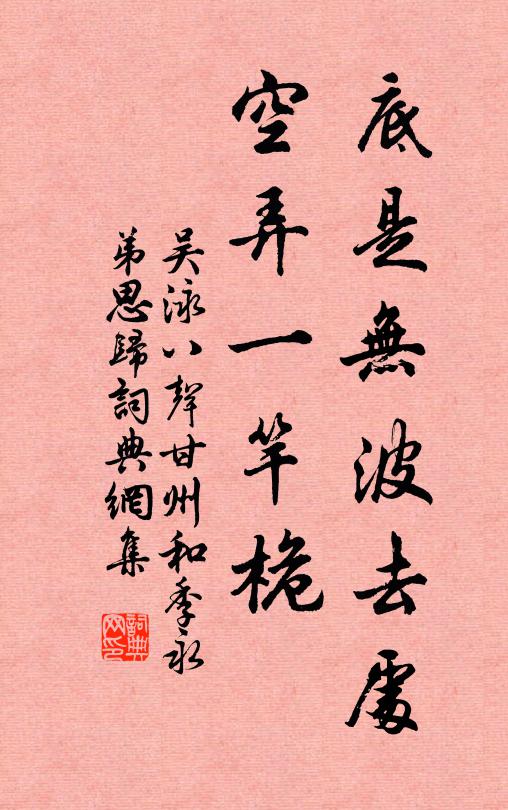 底是無波去處
空弄一竿桅
吴泳八聲甘州和季永
弟思歸詞典網集
詞典網印